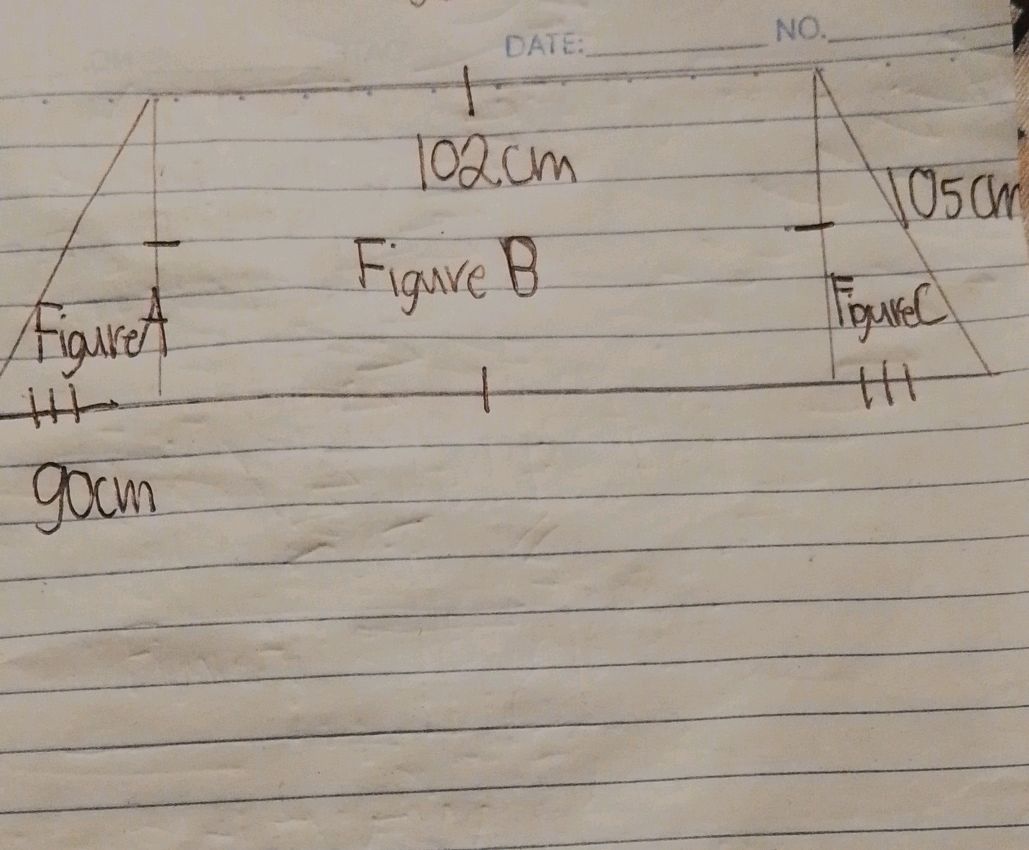 DATE: NO.
102cm
105cm
Figure B
Figure A
Figure C
90cm